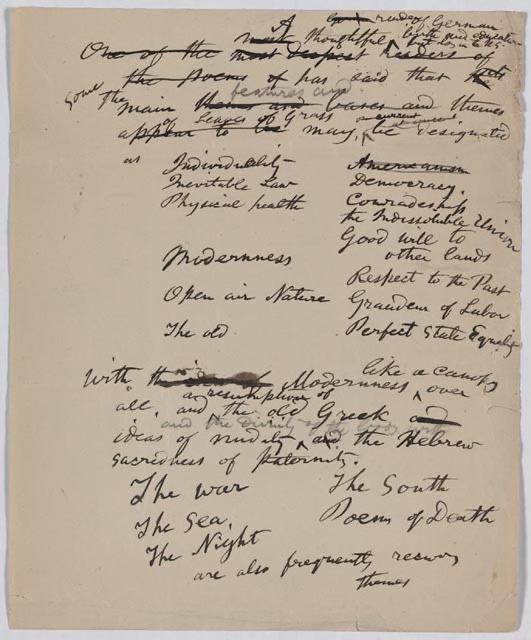 A reader of German
most thoughtful birth and education
One of the most deepest readers of
the poems of has said that
some the features and
main themes and bases and themes
of Leaves of Grass
appear to be may, be designated
as
Individuality Americanism
Inevitable Law Democracy.
Physical health Comradeship
the Indissoluble Union
Good will to
other lands
Modernness
Respect to the Past
Open air Nature Grandeur of Labor
The old Perfect State Equality
With the Modernness, like a canopy over
a resumption of
all, and the old Greek and
and the divinity of the body with
ideas of nudity, and the Hebrew
sacredness of paternity.
The war The South
The Sea, Poems of Death
The Night
are also frequently recurring
themes